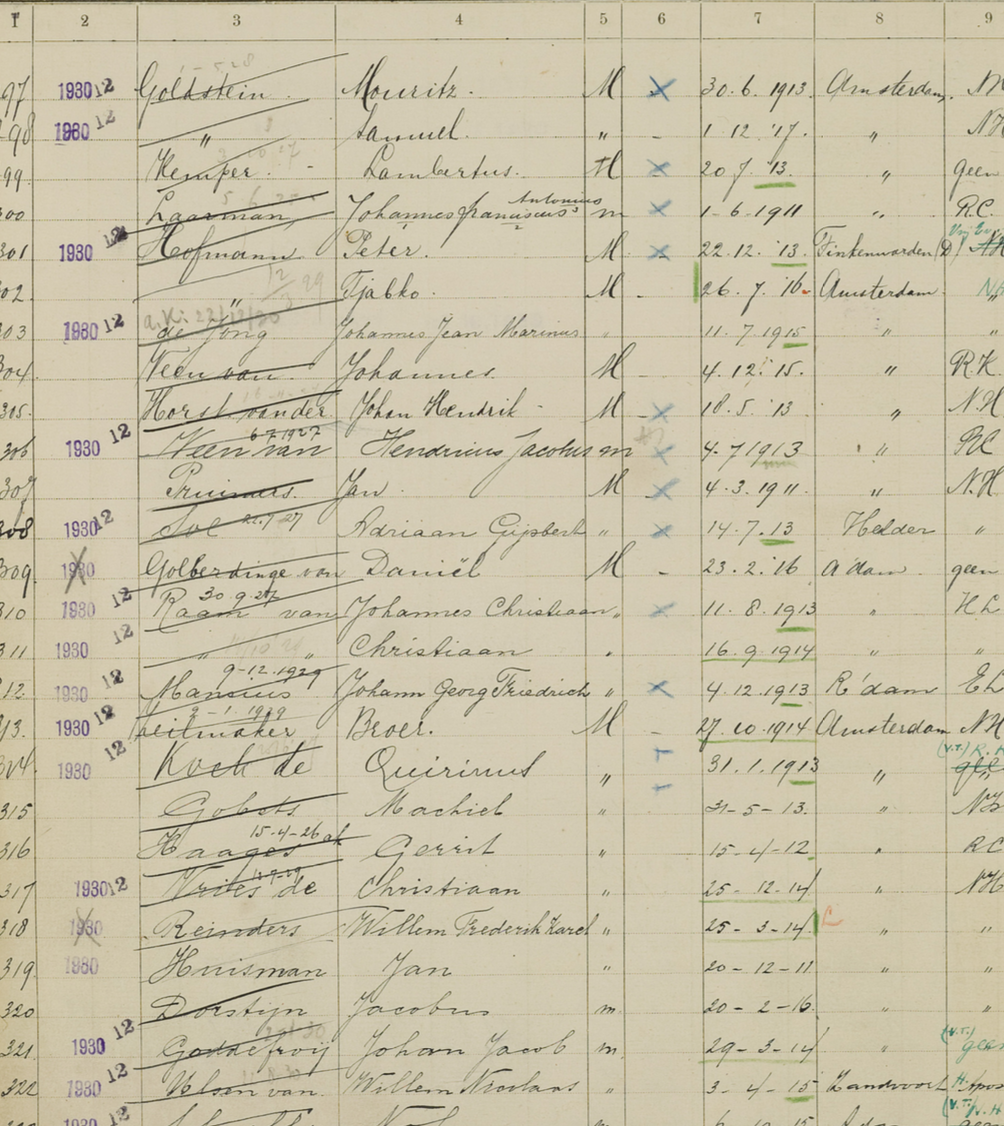 1 2 3 4 5 6 7 8 9
97 1930 12 Goldstein Mouritz. M x 30.6.1913. Amsterdam.
98 1930 12 " Samuel. " - 1 12 '17. " NH
99. Kemper. - Lambertus. M x 20 7. '13. " geen
300 Laarman Johannes franciscus Antonius m x 1-6-1911 " R.C.
301 1930 12 Hofmann Peter. M x 22.12.'13. Finkenwarden (D)
302. " Tjabbo. M - 26.7.'16. Amsterdam
303 1930 12 a.K. 22/12/30 de Jong Johannes Jean Marinus " 11.7.1915 " "
304. Veen van. Johannes. M - 4.12.'15. " R.K.
305. Horst vander Johan Hendrik - M - x 18.5.'13 " N.H
306 1930 12 6-7-1927 Veen van Hendricus Jacobus m x 4.7 1913 " RC
307 Pruimers. Jan M x 4.3.1911. " N.H
308 1930 12 Sol 22.7-27 Adriaan Gijsbert " x 14.7.13 Helder "
309 1930 Golberdinge van Daniël M - 23.2.'16 A'dam geen
310 1930 12 30-9-27 Raam van Johannes Christiaan " x 11.8.1913 " H L
311 1930 12 " " Christiaan " 16.9.1914 " "
312 1930 12 9-12.1929 Mansius Johann Georg Friedrich " x 4.12.1913 R'dam E L
313. 1930 12 9-1-1929 Broer. M - 27.10.1914 Amsterdam NH
314. 1930 12 Koch de Quirinus " 31.1.1913 " (V.T.)
315 Gobets Machiel " 31-5-13. "
316 15-4-26 af Haages Gerrit " 15-4-12 " RC
317 1930 12 Vries de Christiaan " 25-12-14 " NH
318 1930 Reinders Willem Frederik Karel " 25-3-14 L " "
319 1930 Huisman Jan " 20-12-11 " "
320 Dorstijn Jacobus m. 20-2-16. " "
321 1930 12 Goddefroij Johan Jacob m 29-3-14 " (V.T.) geen
322 1930 12 Ulsen van. Willem Nicolaas " 3-4-15 Zandvoort H. Apos
1930 12 (V.T.) N.H